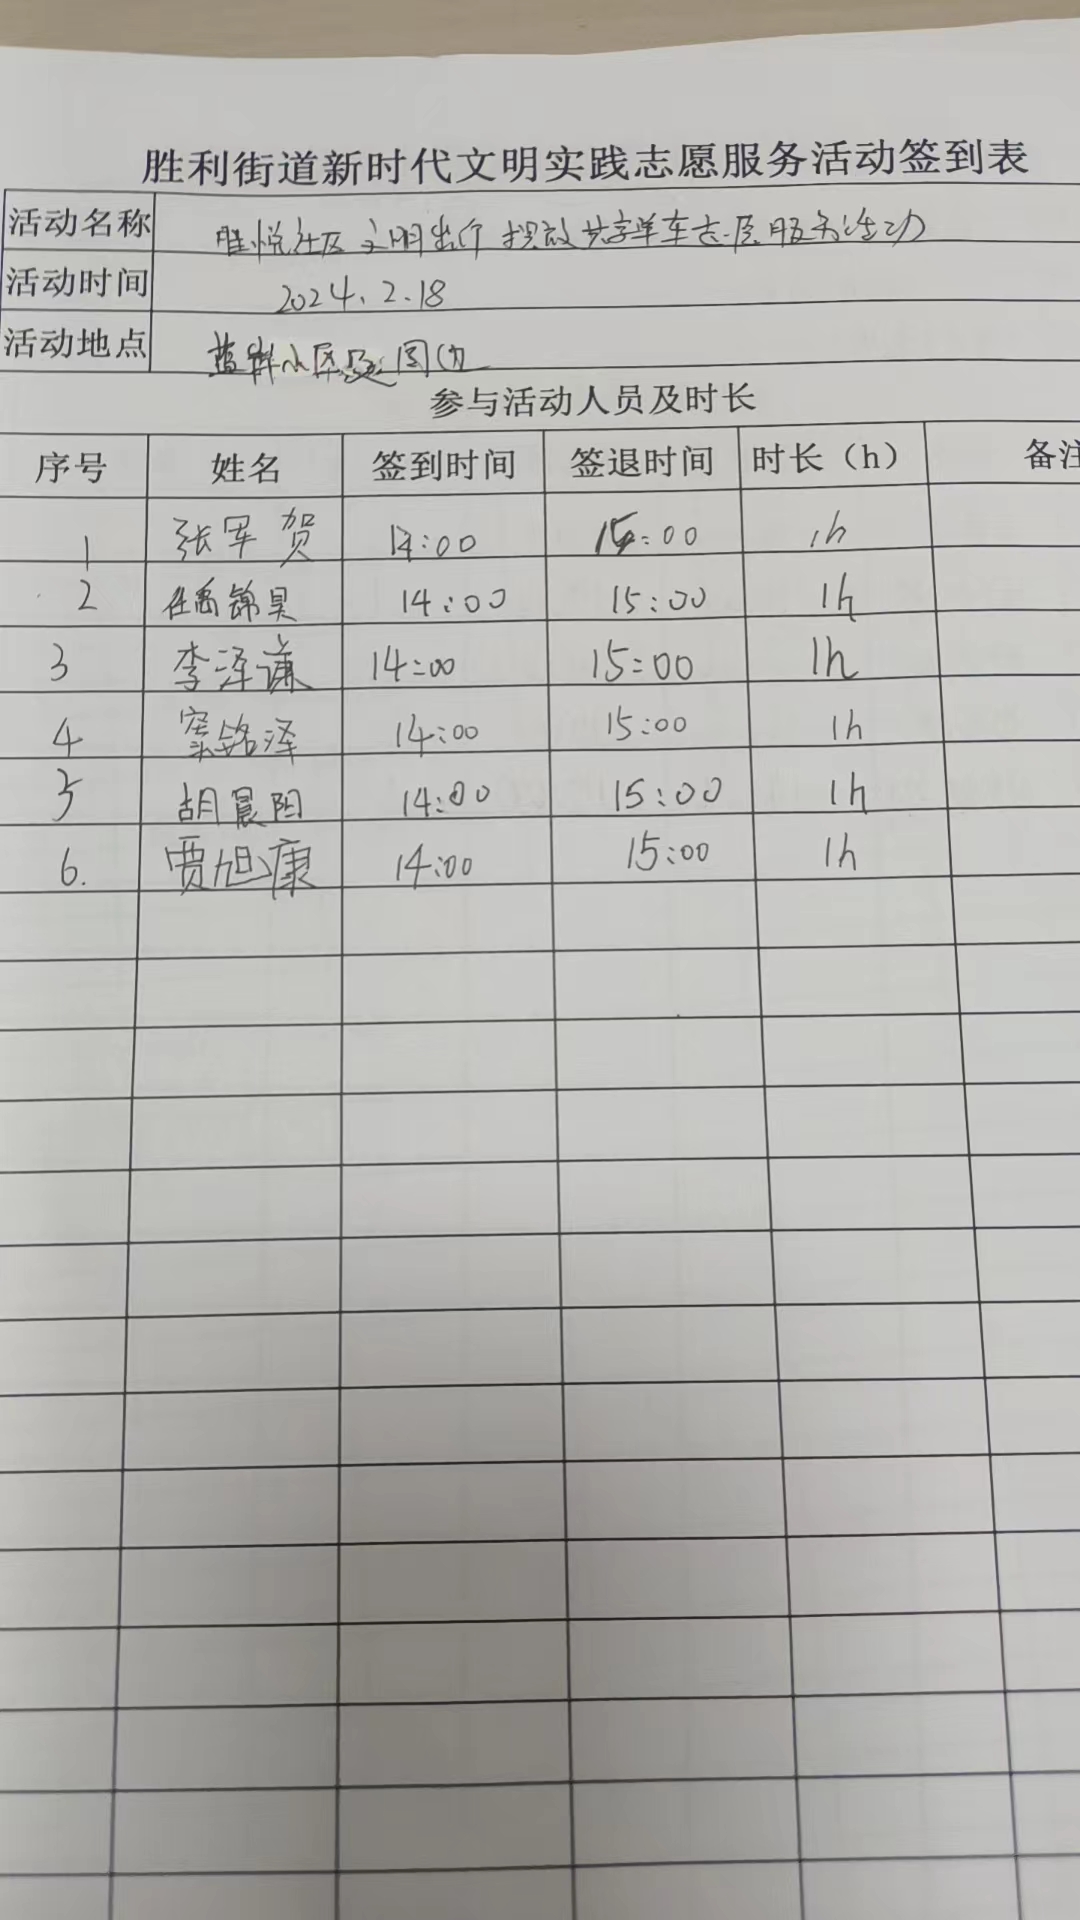 胜利街道新时代文明实践志愿服务活动签到表
活动名称 胜悦社区文明出行 摆放共享单车志愿服务活动
活动时间 2024.2.18
活动地点 小区 周边
参与活动人员及时长
序号 姓名 签到时间 签退时间 时长（h） 备注
1 张军贺 14:00 15:00 1h
2 任禹锦昊 14:00 15:00 1h
3 李泽谦 14:00 15:00 1h
4 窦铭泽 14:00 15:00 1h
5 胡晨阳 14:00 15:00 1h
6. 贾旭康 14:00 15:00 1h